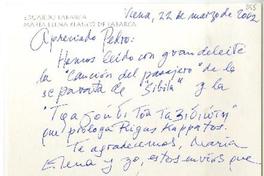 Viena, 22 de marzo de 2002
EDUARDO LABARCA
MARIA ELENA BLANCO DE LABARCA
Apreciado Pedro:
Hemos leído con gran deleite
la "Canción del pasajero" de la
separata de "Sibila" y la
que prologa Rigas Kappatos.
Te agradecemos, María
Elena y yo, estos envíos que